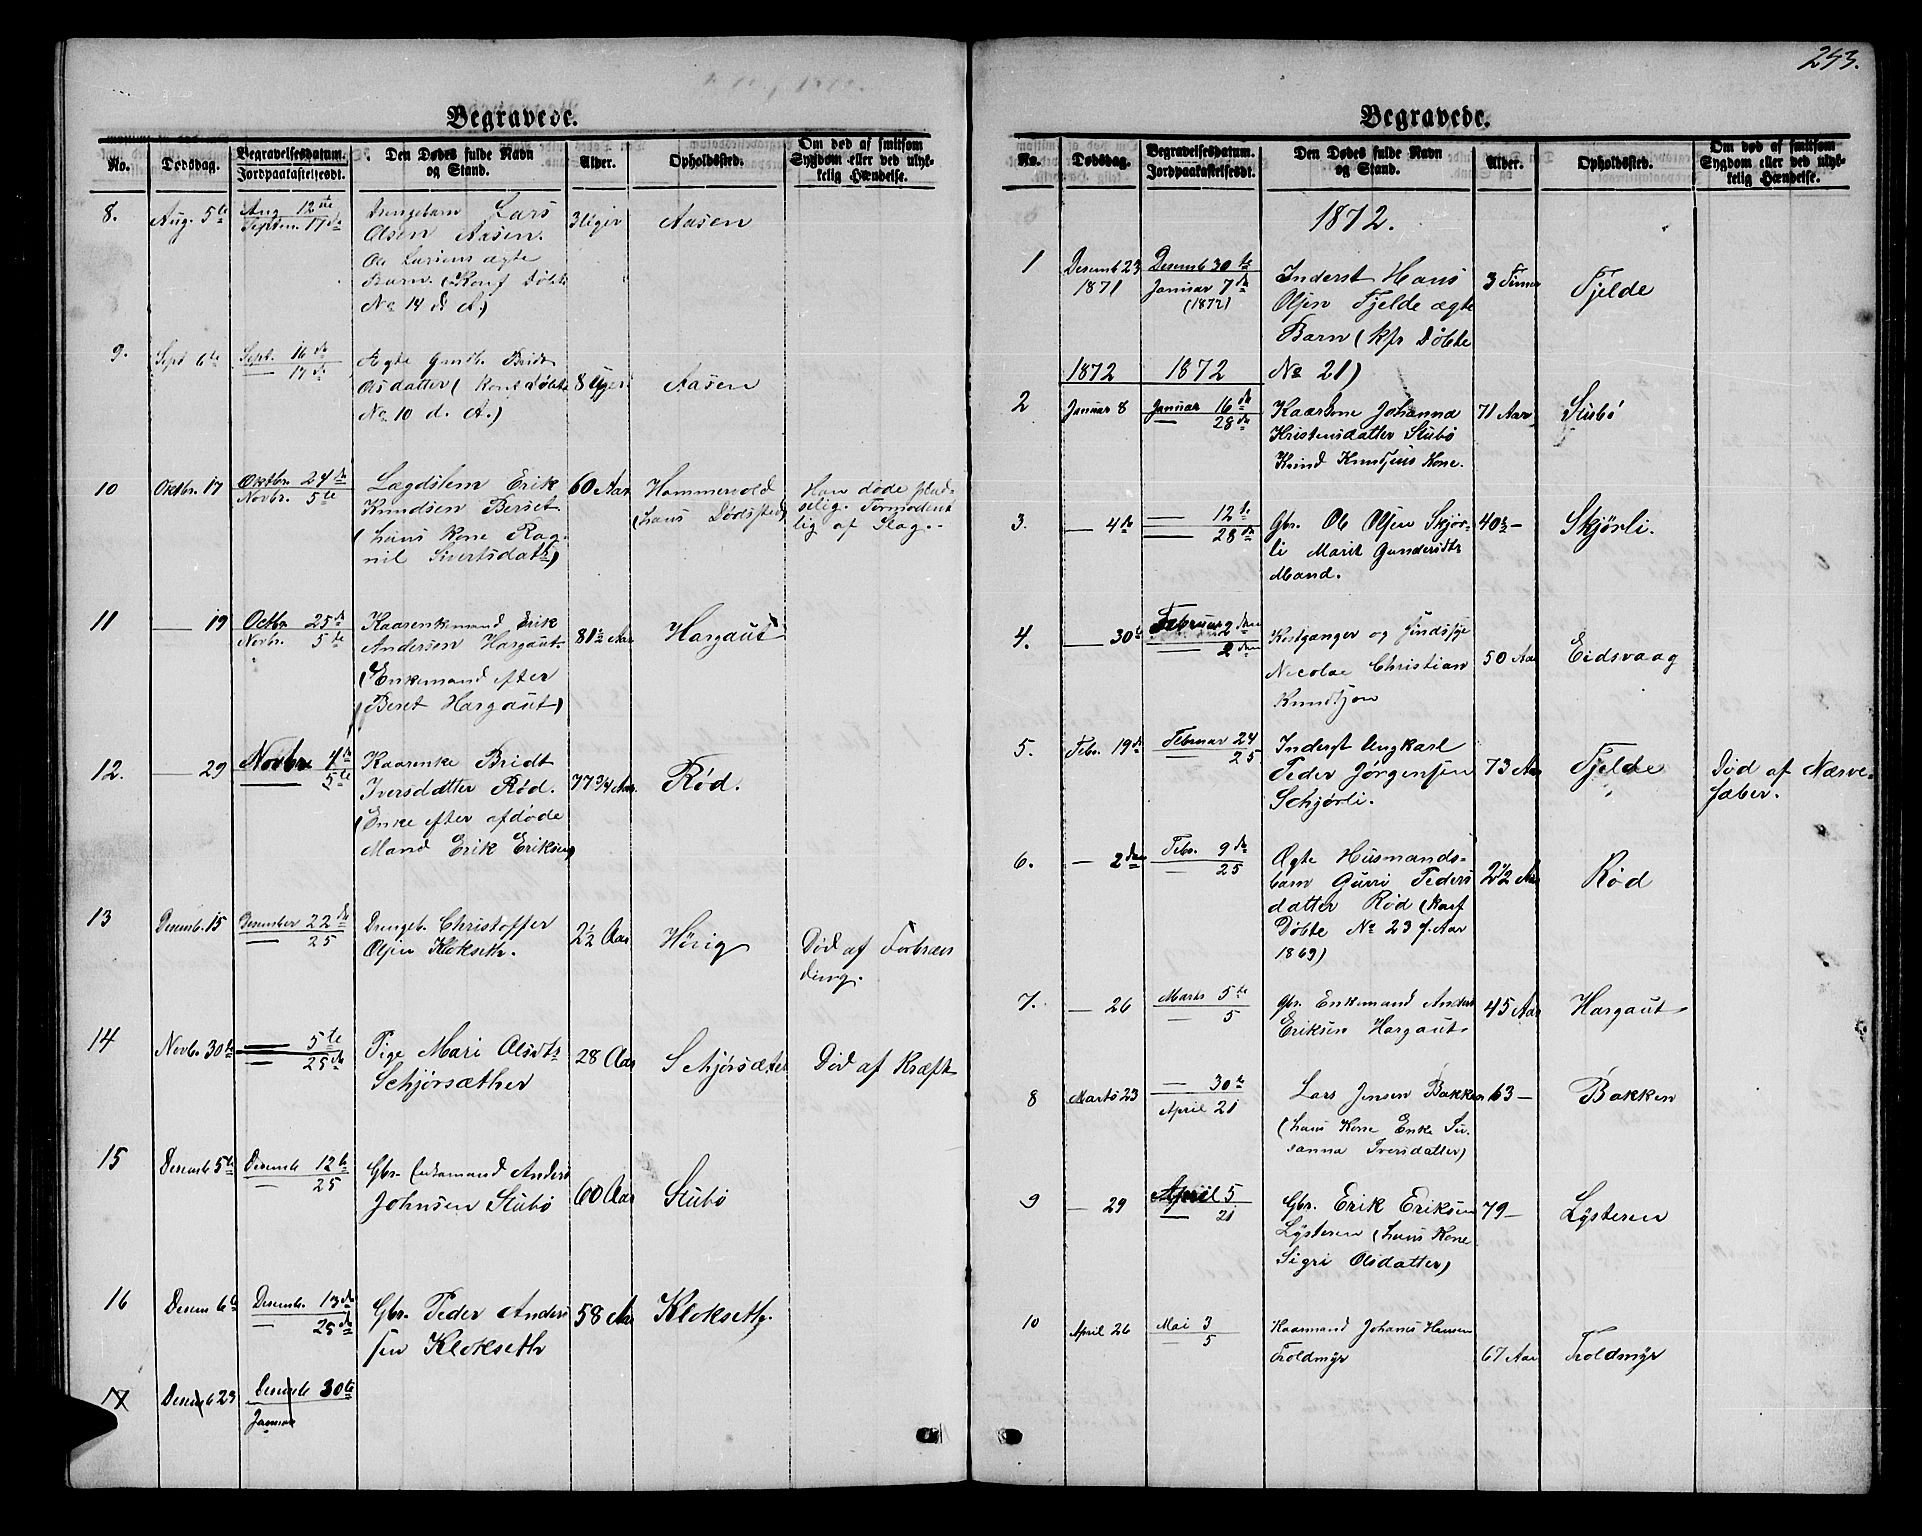 253.
Begravede.
No. Dødsdag. Begravelsesdatum. Jordpaakastelsesdt. Den Dødes fulde Navn og Stand. Alder. Opholdssted. Om død af smitsom Sygdom eller ved ulykkelig Hændelse.
8. Aug. 5te Aug 12te Septem. 17de Drengebarn Lars 3 Uger Aasen
Olsen Aasen.
Ole Larsens ægte
Barn. (Konf Døbte
No 14 d. A.)
9. Sept 6te Sept. 16de 17de Ægte Bridt 8 Uger Aasen
Olsdatter (Konf Døbte
No 10 d. A.)
10 Oktbr. 17 Oktbr. 24de Novbr. 5te Lægdslem Erik 60 Aar Hammervold Han døde plud-
Knudsen Berset (hans Dødssted) selig. Formodent
(hans Kone Rag- lig af Slag.
nil Sivertsdatt)
11 — 19 Octbr 25de Novbr. 5te Kaarenkemand Erik 81½ Aar Hargaut
Andersen Hargaut
(Enkemand efter
Beret Hargaut)
12. — 29 Novbr 4de 5te Kaarenke Bridt 77 3/4 Aar Rød.
Iversdatter Rød.
(Enke efter afdøde
Mand Erik Eriksen)
13 Desemb. 15 Desember 22de 25 Drengeb. Christoffer 2½ Aar Hörig Død af Forbræn
Olsen Klokseth. ding.
14 Novb. 30te — 5te — 25de Pige Mari Olsdt 28 Aar Schjørsæter Død af Kræft
Schjørsæther
15 Desemb 5te Desemb 12te 25 Gbr. Enkemand Anders 60 Aar Stubø
Johnsen Stubø
16 Desem 6te Desemb. 13de 25de Gbr. Peder Ander 58 Aar Klokseth.
sen Klokseth
17 Desemb 23 Desemb 30te Januar
Begravede.
No. Dødsdag. Begravelsesdatum. Jordpaakastelsesdt. Den Dødes fulde Navn og Stand. Alder. Opholdssted. Om død af smitsom Sygdom eller ved ulykkelig Hændelse.
1872.
1 Desemb 23 1871 Desemb 30te Januar 7de (1872) Inderst Hans 3 Timer Fjelde
Olsen Fjelde ægte
Barn (kfr Døbte
1872 1872 No 21)
2 Januar 8 Januar 16de 28de Kaarkone Johanna 71 Aar Stubö
Kristensdatter Stubö
Knud Knudsens Kone.
3. — 4de — 12te 28de Gbr. Ole Olsen Skjør- 40½ — Skjørli.
li Marit Gundersdtr
Mand.
4. — 30te Februar 9den — 2den Kostgænger og Sindssyge 50 Aar Eidsvaag
Nicolae Christian
Knudtzon
5. Febr. 19de Februar 24 25 Inderst Ungkarl 73 Aar Fjelde Død af Nerve-
Peder Jørgensen feber.
Schjørli.
6. — 2den Febr. 9de 25 Ægte Husmands- 2½ Aar Rød
barn Gurri Peders
datter Rød (Konf
Døbte No 23 f. Aar
1869)
7. — 26 Marts 5te 5 Gbr. Enkemand Anders 45 Aar Hargaut
Eriksen Hargaut
8 Marts 23 — 30te April 21 Lars Jensen Bakken 63 — Bakken
(hans Kone Enke Su-
sanna Iversdatter)
9 — 29 April 5 21 Gbr. Erik Eriksen 79 — Lÿsteren
Lÿsteren (hans Kone
Sigri Olsdatter)
10 April 26 Mai 3 5 Kaarmand Johanes Hansen 67 Aar Troldmÿr
Troldmÿr